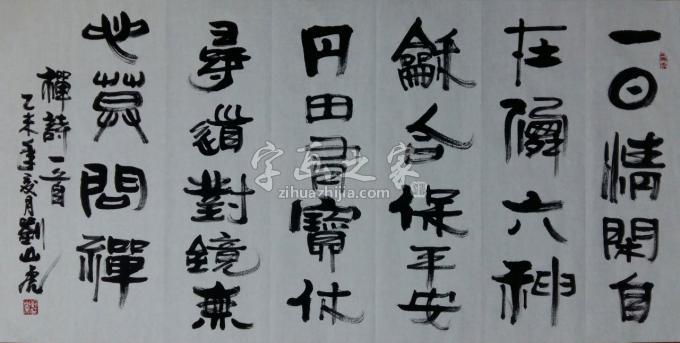 一日情閑自
在僊六神
龢合保平安
丹田有寶休
尋道對鏡無
心莫問禪
禪詩一首
乙未年夏月劉山虎
字画之家
zihuazhijia.com